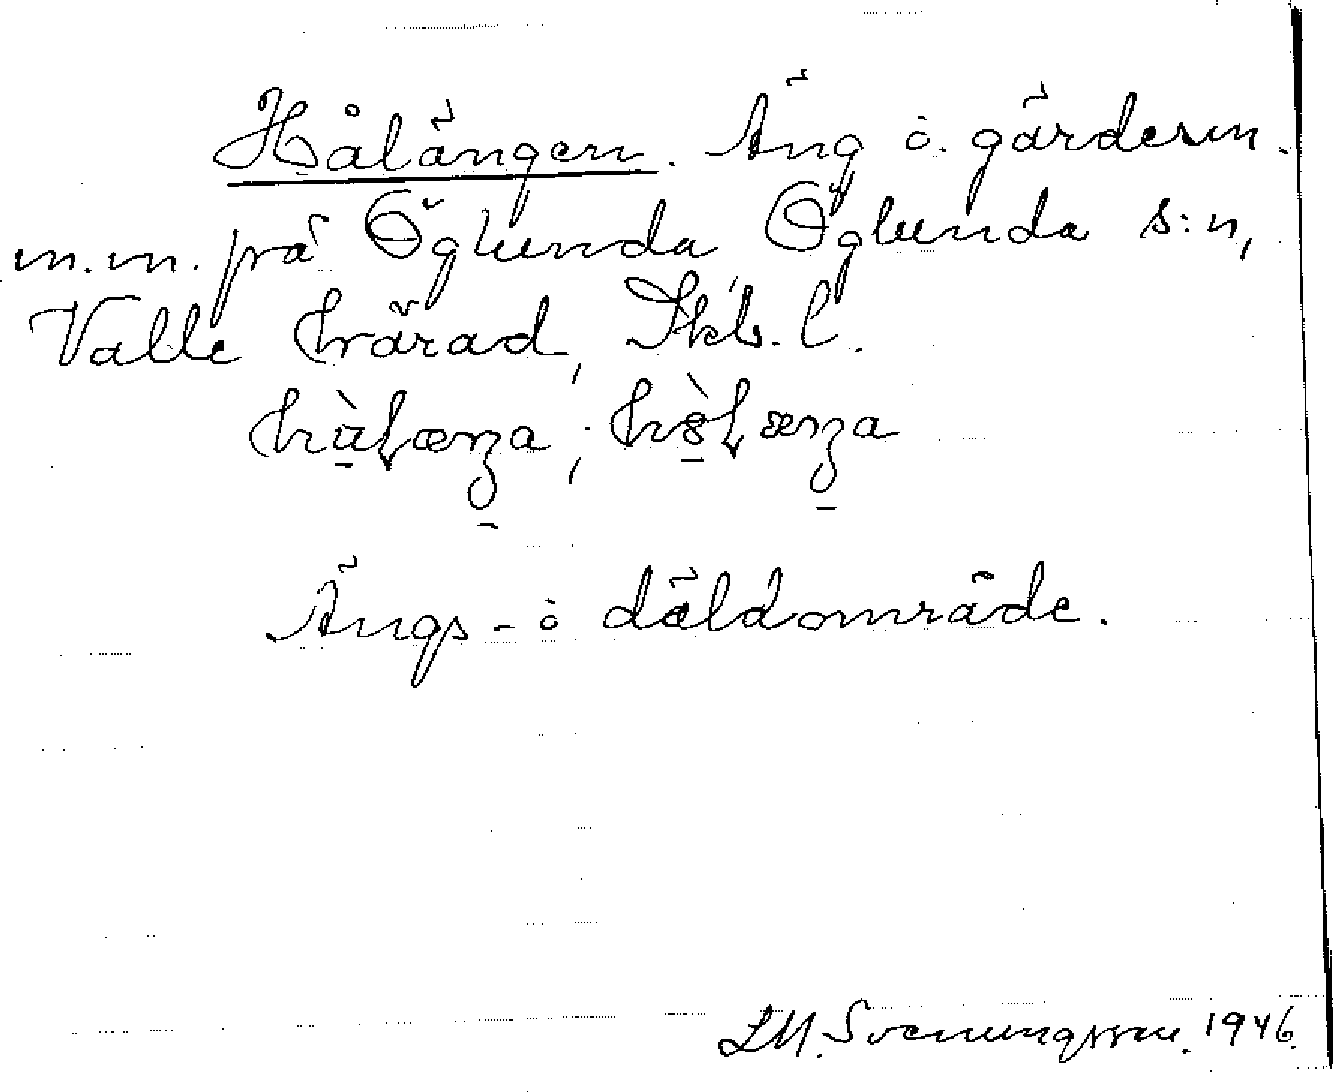 Hålängen. Äng o. gärdesm.
m.m. på Öglunda Öglunda s:n,
Valle härad, Skb. l.
Ängs- o däldområde.
L.M. Svenungsson. 1946.